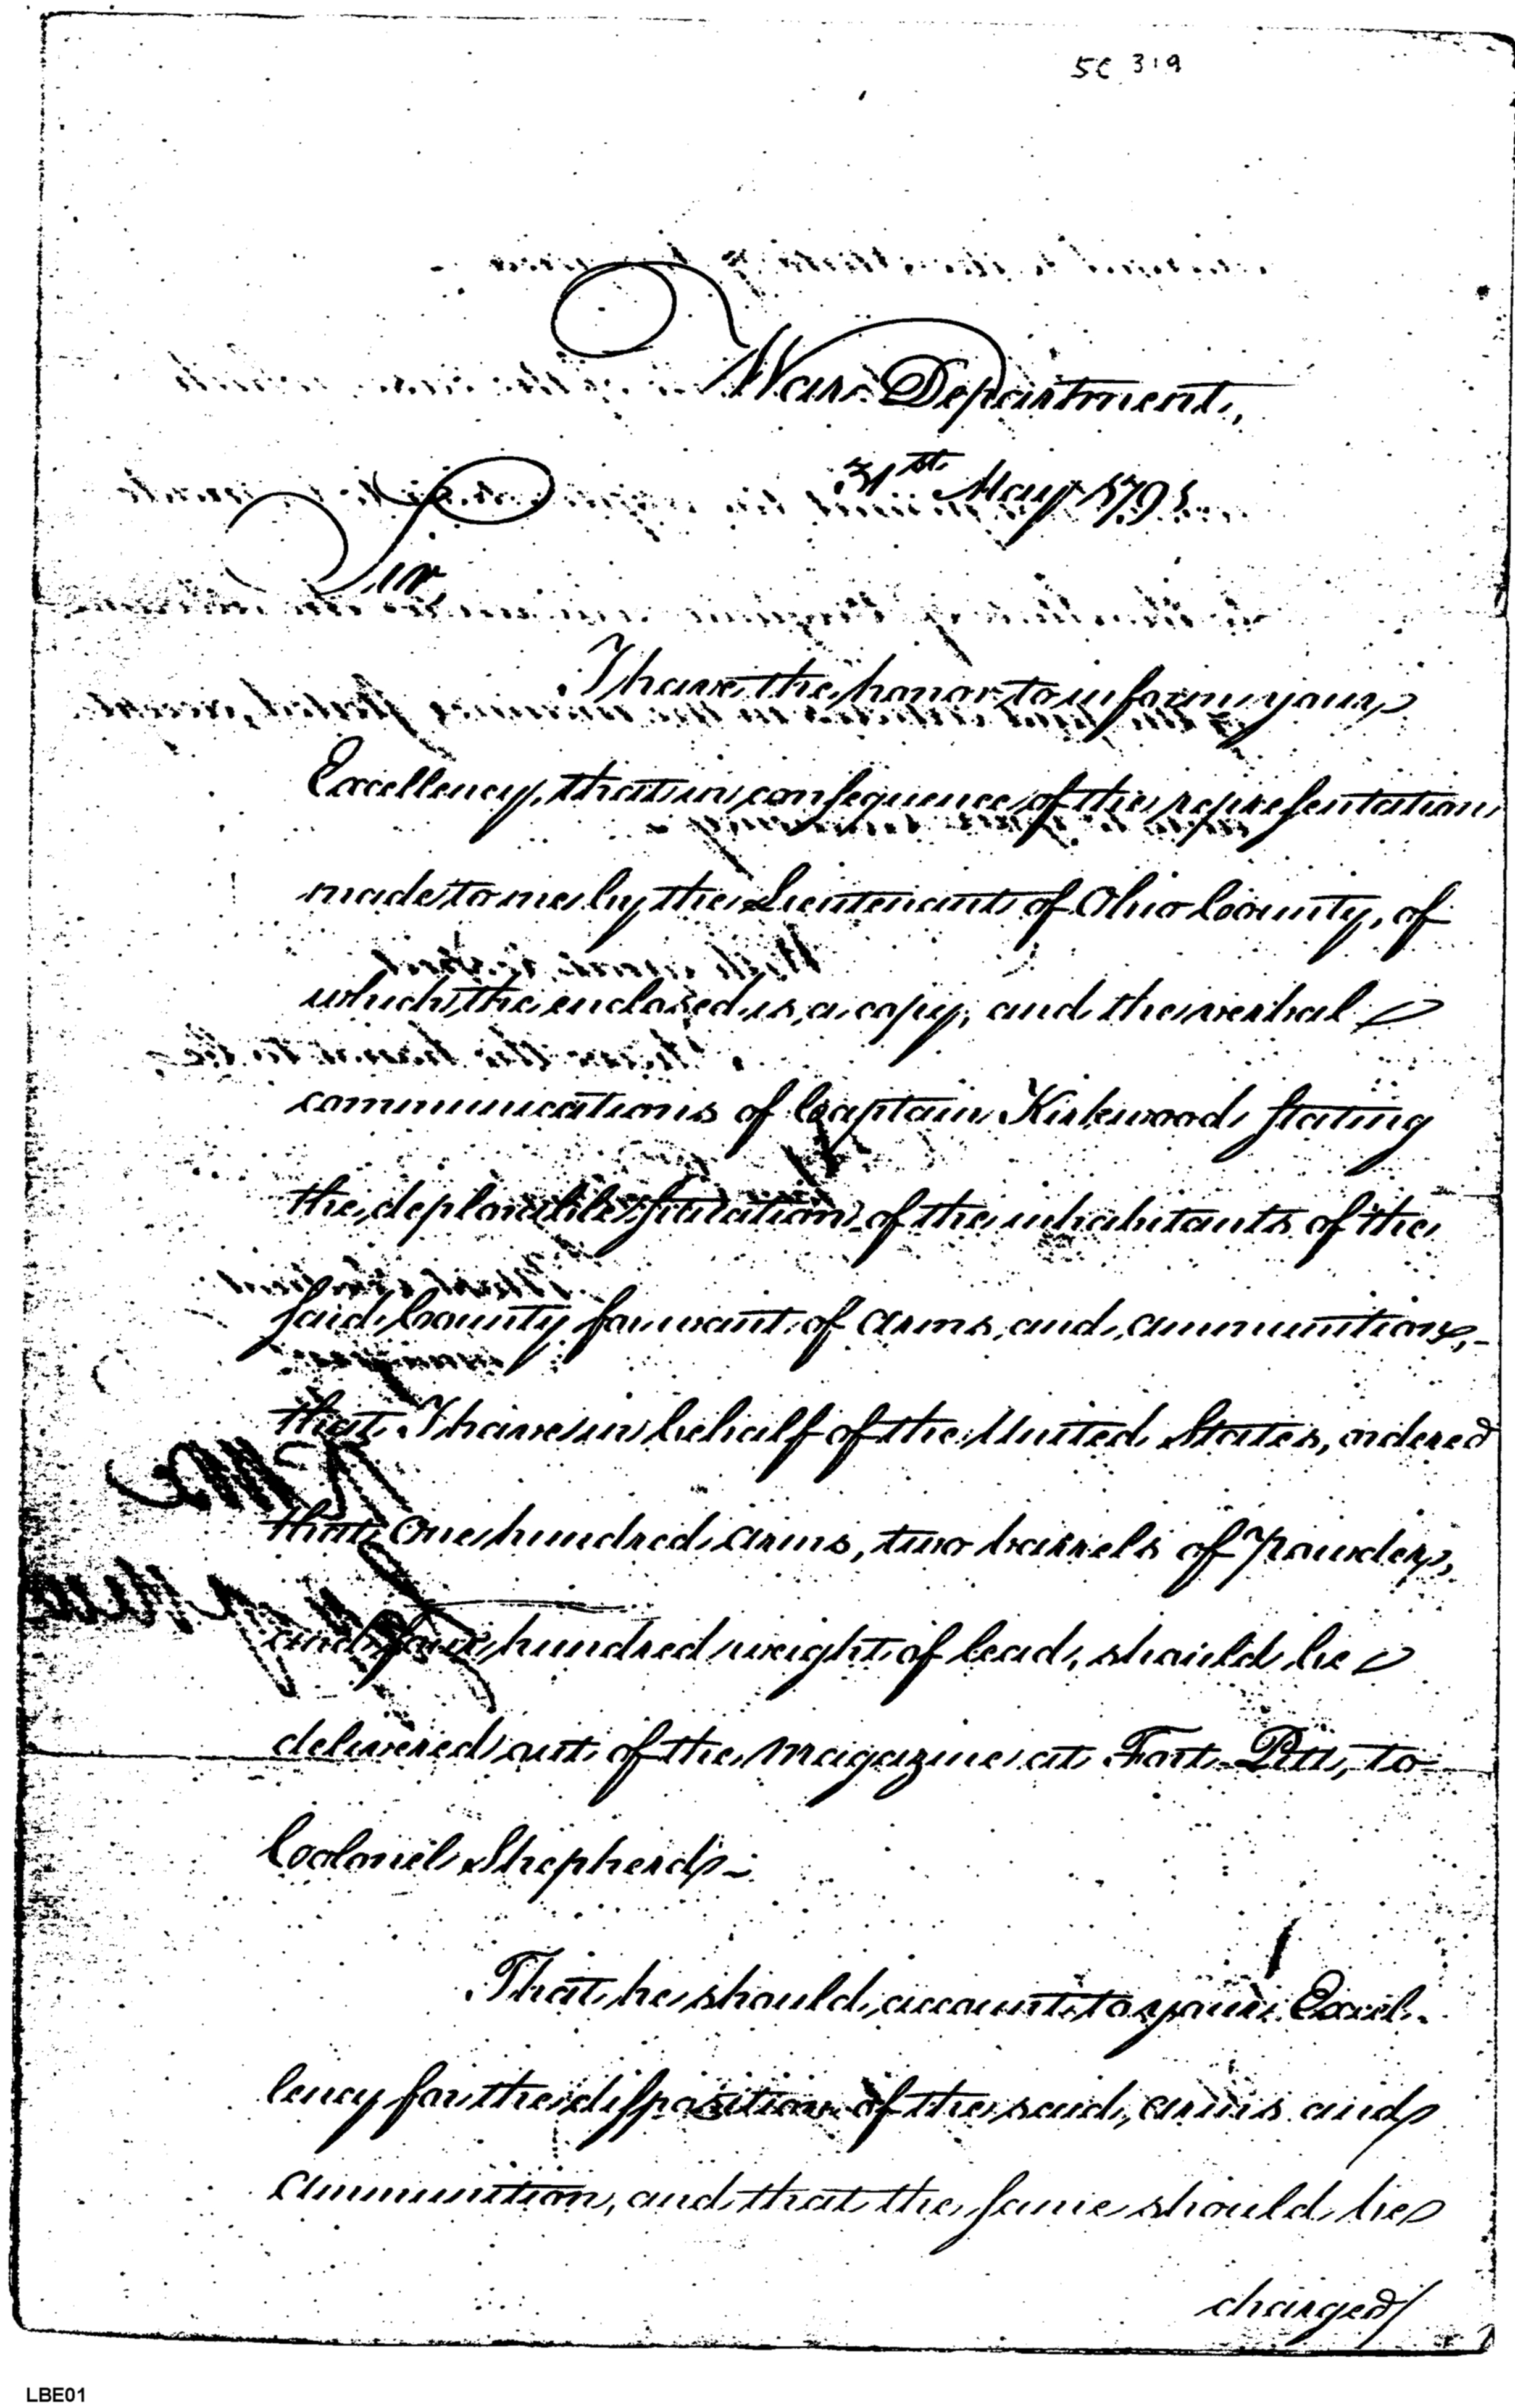 5C 319
War Department,
31st May 179
Sir,
I have the honor to inform your
Excellency, that in consequence of the representation
made to me by the Lieutenant of Ohio County, of
which the enclosed is a copy, and the verbal
communications of Captain Kirkwood, stating
the deplorable situation of the inhabitants of the
said County for want of arms, and ammunition, -
that I have in behalf of the United States, ordered
that one hundred arms, two barrels of Powder,
and four hundred weight of lead, should be
delivered out of the magazine at Fort Pitt, to
Colonel Shepherd -
That he should account to your Excel-
lency for the disposition of the said, arms and
ammunition, and that the same should be
charged/
LBE01